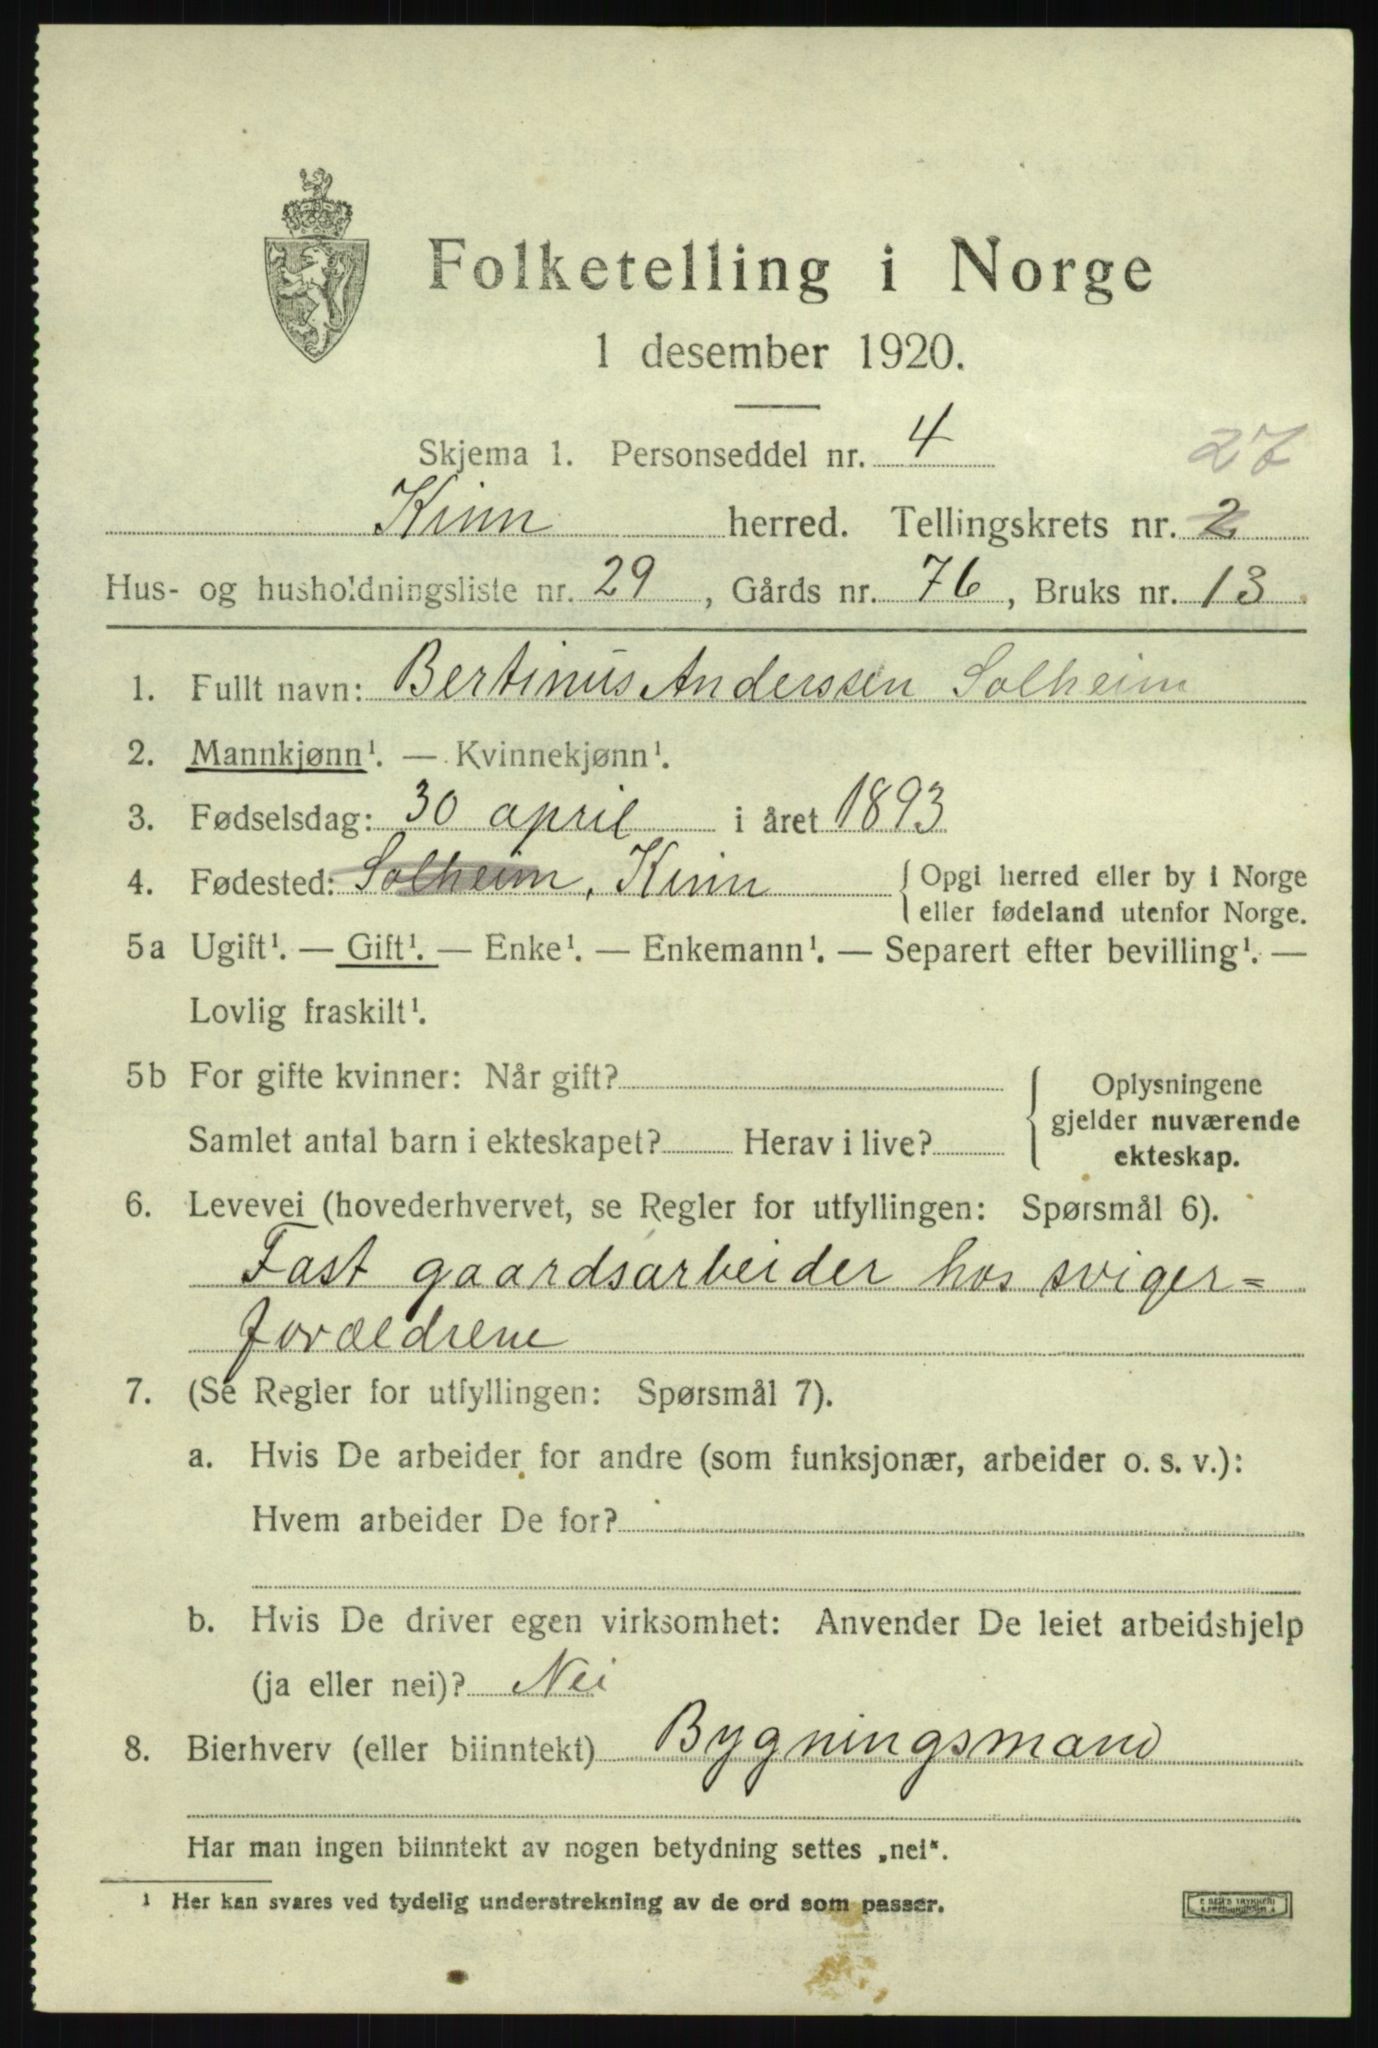 Folketelling i Norge
1 desember 1920.
Skjema 1. Personseddel nr. 4
27
Kinn herred. Tellingskrets nr. 2
Hus- og husholdningsliste nr. 29, Gårds nr. 76, Bruks nr. 13
1. Fullt navn: Bertinus Anderssen Solheim
2. Mannkjønn¹. — Kvinnekjønn¹.
3. Fødselsdag: 30 april i året 1893
4. Fødested: Solheim, Kinn { Opgi herred eller by i Norge
eller fødeland utenfor Norge.
5a Ugift¹. — Gift¹. — Enke¹. — Enkemann¹. — Separert efter bevilling¹. —
Lovlig fraskilt¹.
5b For gifte kvinner: Når gift?
Samlet antal barn i ekteskapet? Herav i live?
Oplysningene
gjelder nuværende
ekteskap.
6. Levevei (hovederhvervet, se Regler for utfyllingen: Spørsmål 6).
Fast gaardsarbeider hos sviger=
forældrene
7. (Se Regler for utfyllingen: Spørsmål 7).
a. Hvis De arbeider for andre (som funksjonær, arbeider o. s. v.):
Hvem arbeider De for?
b. Hvis De driver egen virksomhet: Anvender De leiet arbeidshjelp
(ja eller nei)? Nei
8. Bierhverv (eller biinntekt) Bygningsmand
Har man ingen biinntekt av nogen betydning settes „nei“.
¹ Her kan svares ved tydelig understrekning av de ord som passer.